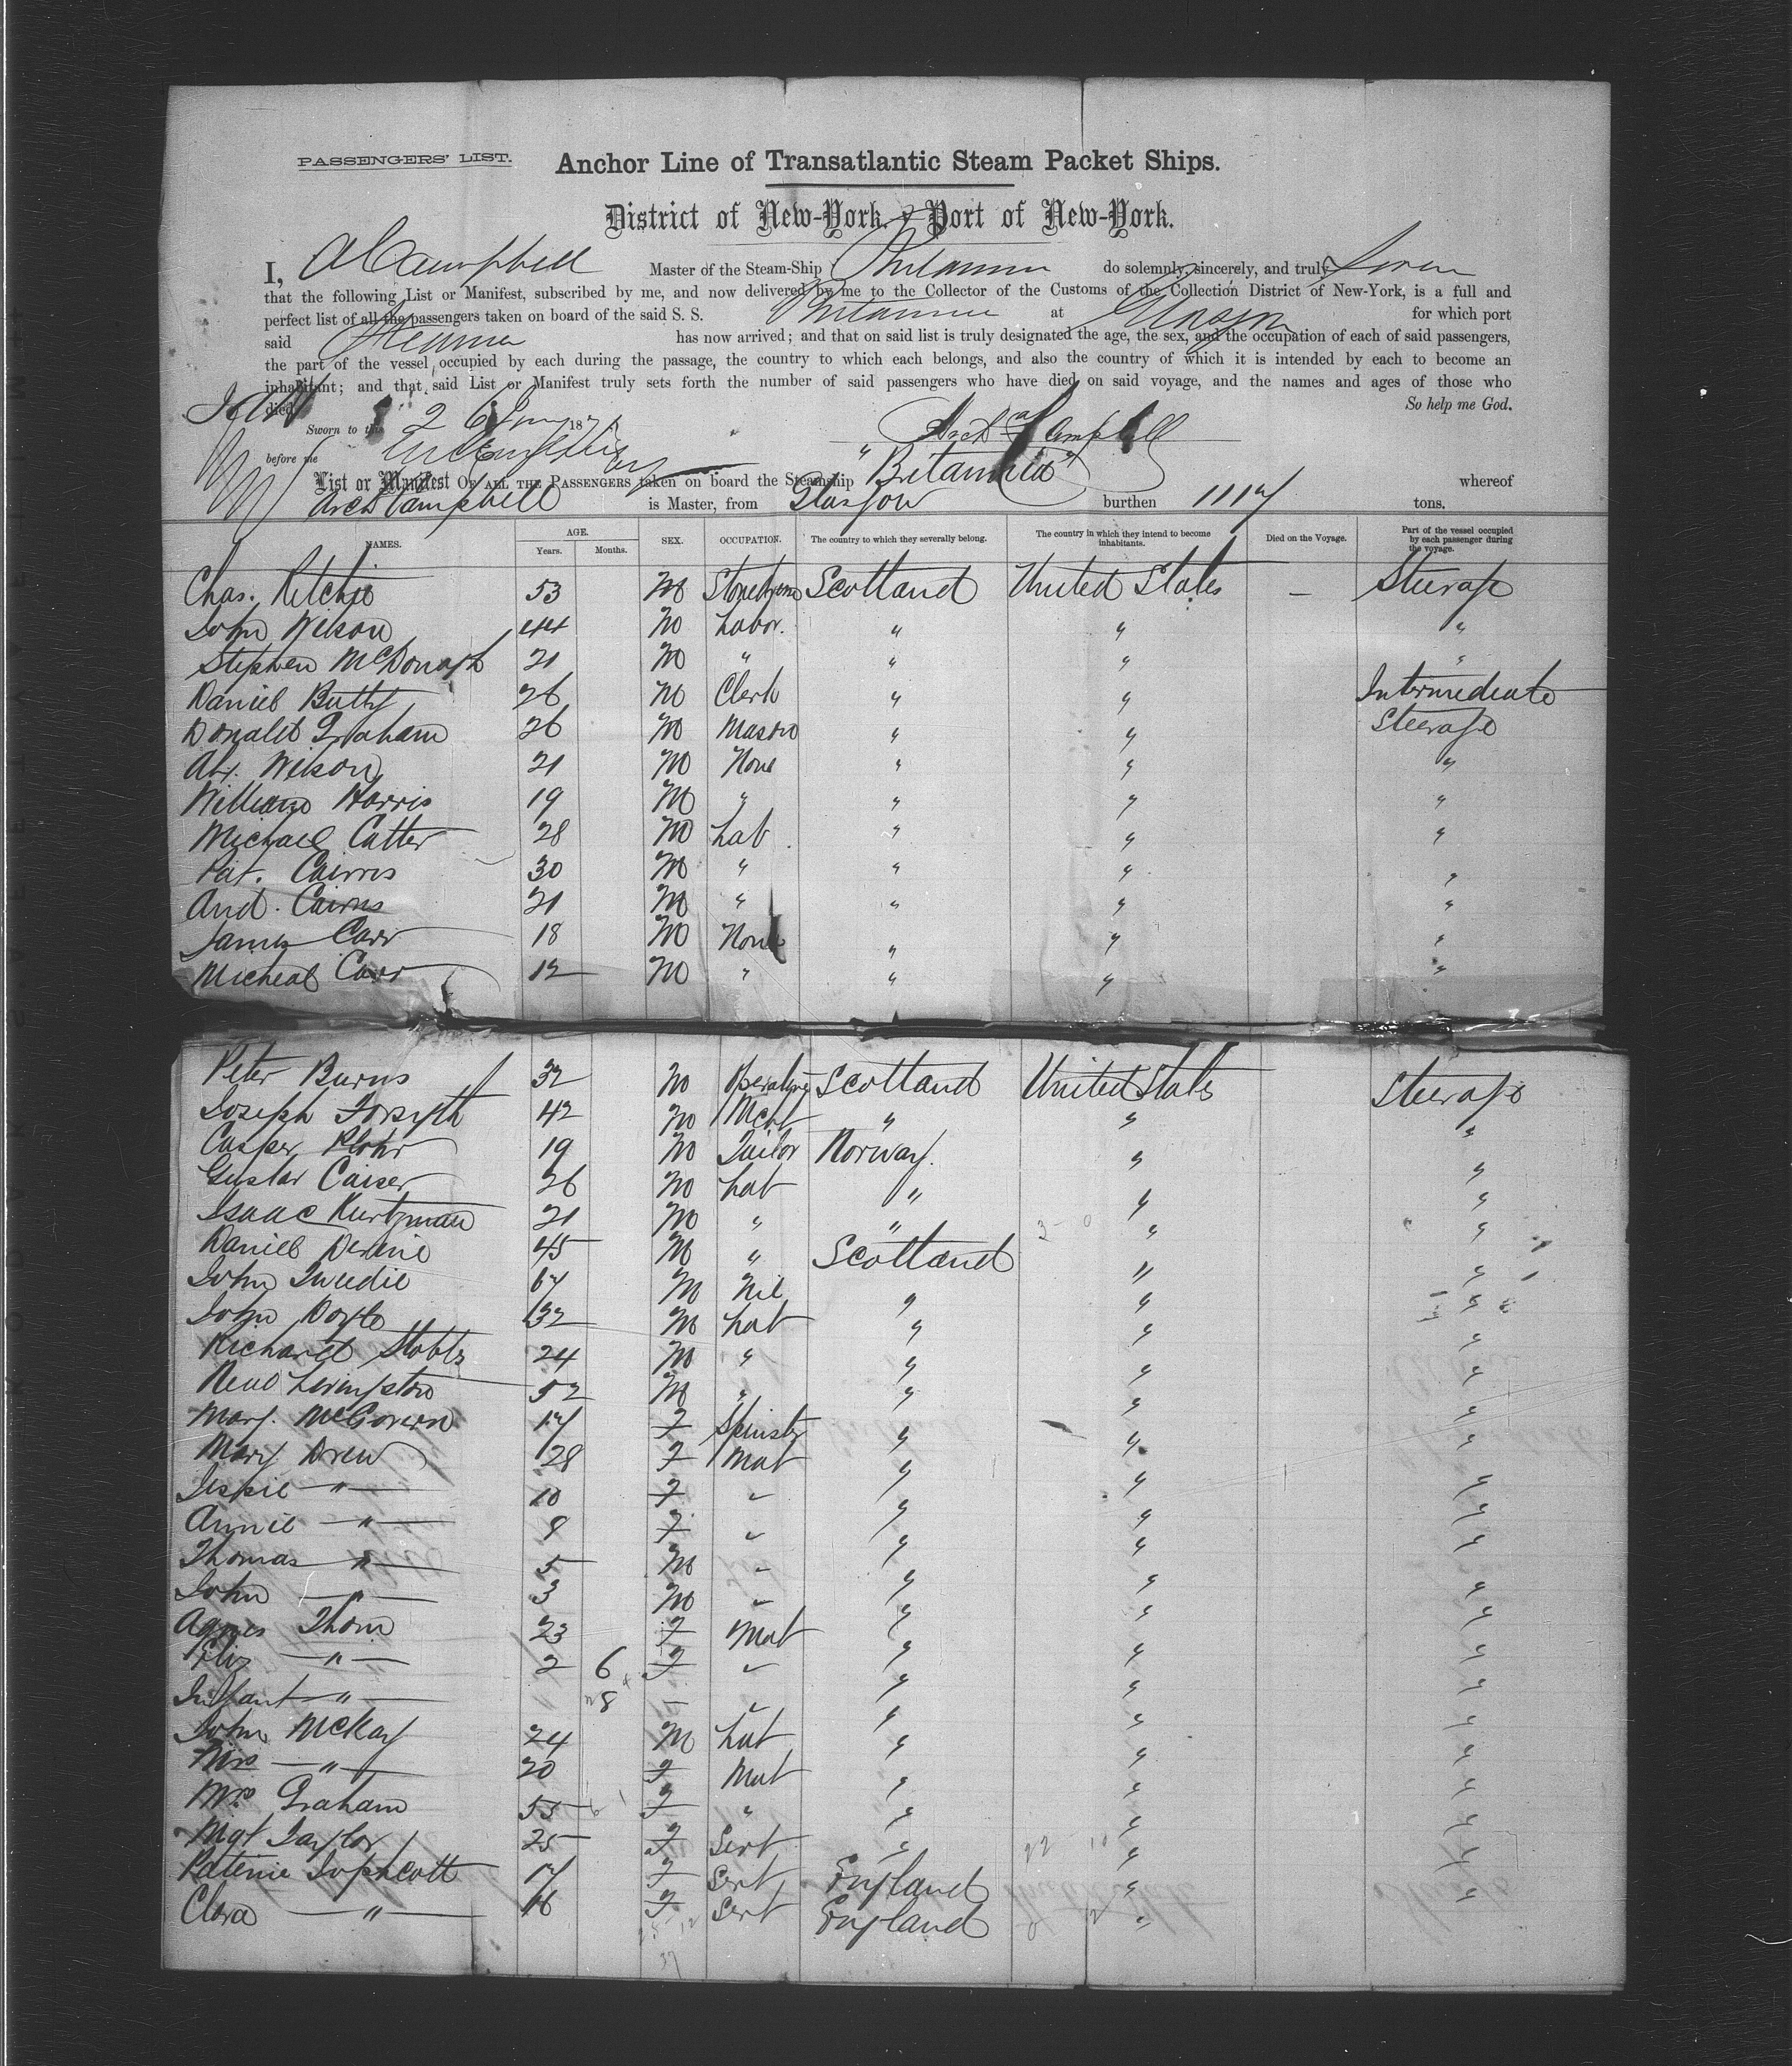 PASSENGERS' LIST.
Anchor Line of Transatlantic Steam Packet Ships.
District of New-York. Port of New-York.
I, A Campbell Master of the Steam-Ship Britannia do solemnly, sincerely, and truly Swear
that the following List or Manifest, subscribed by me, and now delivered by me to the Collector of the Customs of the Collection District of New-York, is a full and
perfect list of all the passengers taken on board of the said S. S. Britannia at Glasgow for which port
said Steamer has now arrived; and that on said list is truly designated the age, the sex, and the occupation of each of said passengers,
the part of the vessel occupied by each during the passage, the country to which each belongs, and also the country of which it is intended by each to become an
inhabitant; and that said List or Manifest truly sets forth the number of said passengers who have died on said voyage, and the names and ages of those who
died. So help me God.
Sworn to this 26 187 Arch Campbell
before me
List or Manifest OF ALL THE PASSENGERS taken on board the Steamship "Britannia" whereof
Arch Campbell is Master, from Glasgow burthen tons.
NAMES. AGE. Years. Months. SEX. OCCUPATION. The country to which they severally belong. The country in which they intend to become inhabitants. Died on the Voyage. Part of the vessel occupied by each passenger during the voyage.
Chas. Ritchie 53 M Scotland United States — Steerage
John Wilson 44 M Labor. " " "
Stephen McDonagh 21 M " " " "
Daniel Butty 26 M Clerk " " Intermediate
Donald Graham 26 M Mason " " Steerage
Alx. Wilson 21 M None " " "
William Harris 19 M " " " "
Michael Cutter 28 M Lab. " " "
Pat. Cairns 30 M " " " "
And. Cairns 21 M " " " "
James Carr 18 M None " " "
Micheal Carr 12 M " " " "
Peter Burns 32 M Operative Scotland United States Steerage
Joseph Forsyth 42 M Mcht " " "
Casper 19 M Tailor Norway. " "
Gustav Caiser 26 M Lab " " "
Isaac Kurtzman 21 M " " " "
Daniel Devine 45 M " Scotland " "
John Tweedie 67 M Nil " " "
John Doyle 32 M Lab " " "
Richard Stobbs 24 M " " " "
Neil Livingston 52 M " " " "
Mary. McGovern 17 F Spinster " " "
Mary Drew 28 F Mat " " "
Jessie " 10 F " " " "
Annie " 9 F " " " "
Thomas " 5 M " " " "
John " 3 M " " " "
Agnes Thom 23 F Mat " " "
Eliz " 2 6 F " " " "
Infant " 8 — " " " "
John McKay 24 M Lab " " "
Mrs " 20 F Mat " " "
Mrs Graham 55 F " " " "
Mgt Taylor 25 F Sert " " "
17 F Sert England " "
Clara " 16 F Sert England "